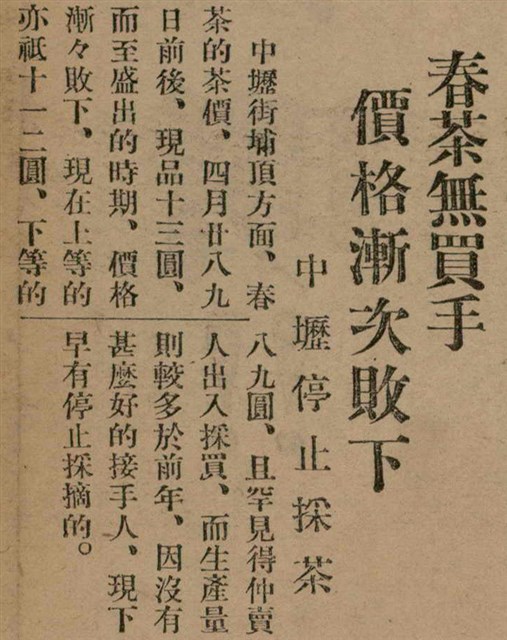 春茶無買手
價格漸次敗下
中壢停止採茶
中壢街埔頂方面、春
茶的茶價、四月廿八九
日前後、現品十三圓、
而至盛出的時期、價格
漸々敗下、現在上等的
亦祗十一二圓、下等的
八九圓、且罕見得仲賣
人出入採買、而生產量
則較多於前年、因沒有
甚麼好的接手人、現下
早有停止採摘的。